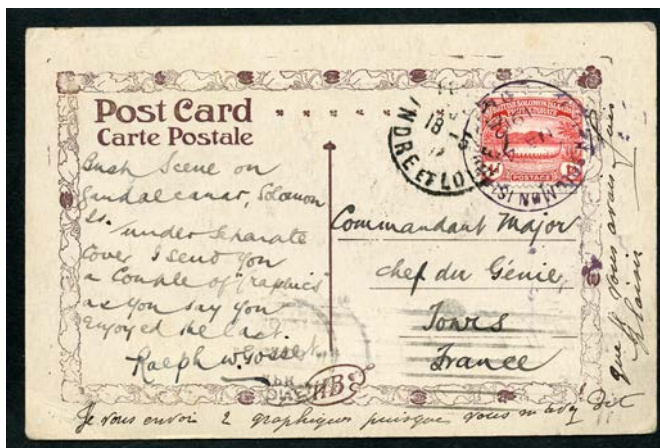 Post Card
Carte Postale
Bush Scene on
Guadalcanar, Solomon
Is. under separate
cover I send you
a couple of "Graphics"
as you say you
enjoyed the last.
Ralph W.
Commandant Major
chef du Génie,
Tours
France
BRITISH SOLOMON ISLANDS
PROTECTORATE
POSTAGE
INDRE ET LOIRE
HBS
Je vous envoi 2 graphiques puisque vous m'avez dit
que vous avais
plaisir